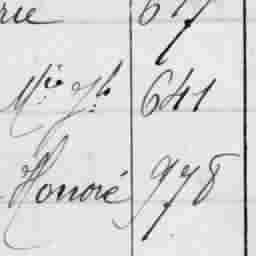 rie 617
Mie Jh 641
Honoré 978